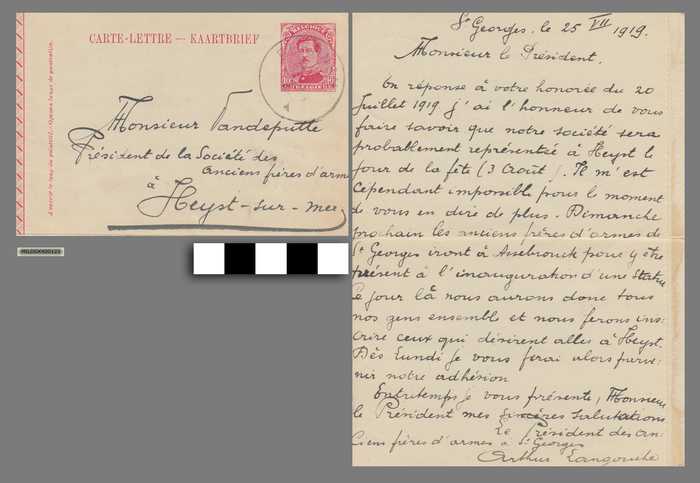 CARTE-LETTRE — KAARTBRIEF
Monsieur Vandeputte
Président de la Société des
anciens frères d'arm
à
Heyst-sur-mer
St Georges, le 25 VII 1919.
Monsieur le Président,
En réponse à votre honorée du 20
Juillet 1919 j'ai l'honneur de vous
faire savoir que notre société sera
probablement représentée à Heyst le
jour de la fête (3 Août). Il m'est
cependant impossible pour le moment
de vous en dire de plus. Dimanche
prochain les anciens frères d'armes de
St Georges iront à Assebrouck pour y être
présent à l'inauguration d'une Statue
Ce jour là nous aurons donc tous
nos gens ensemble et nous ferons ins-
crire ceux qui désirent aller à Heyst.
Dès Lundi je vous ferai alors parve-
nir notre adhésion
Entretemps je vous présente, Monsieur
le Président mes sincères salutations
Le Président des an-
ciens frères d'armes à St Georges
Arthur